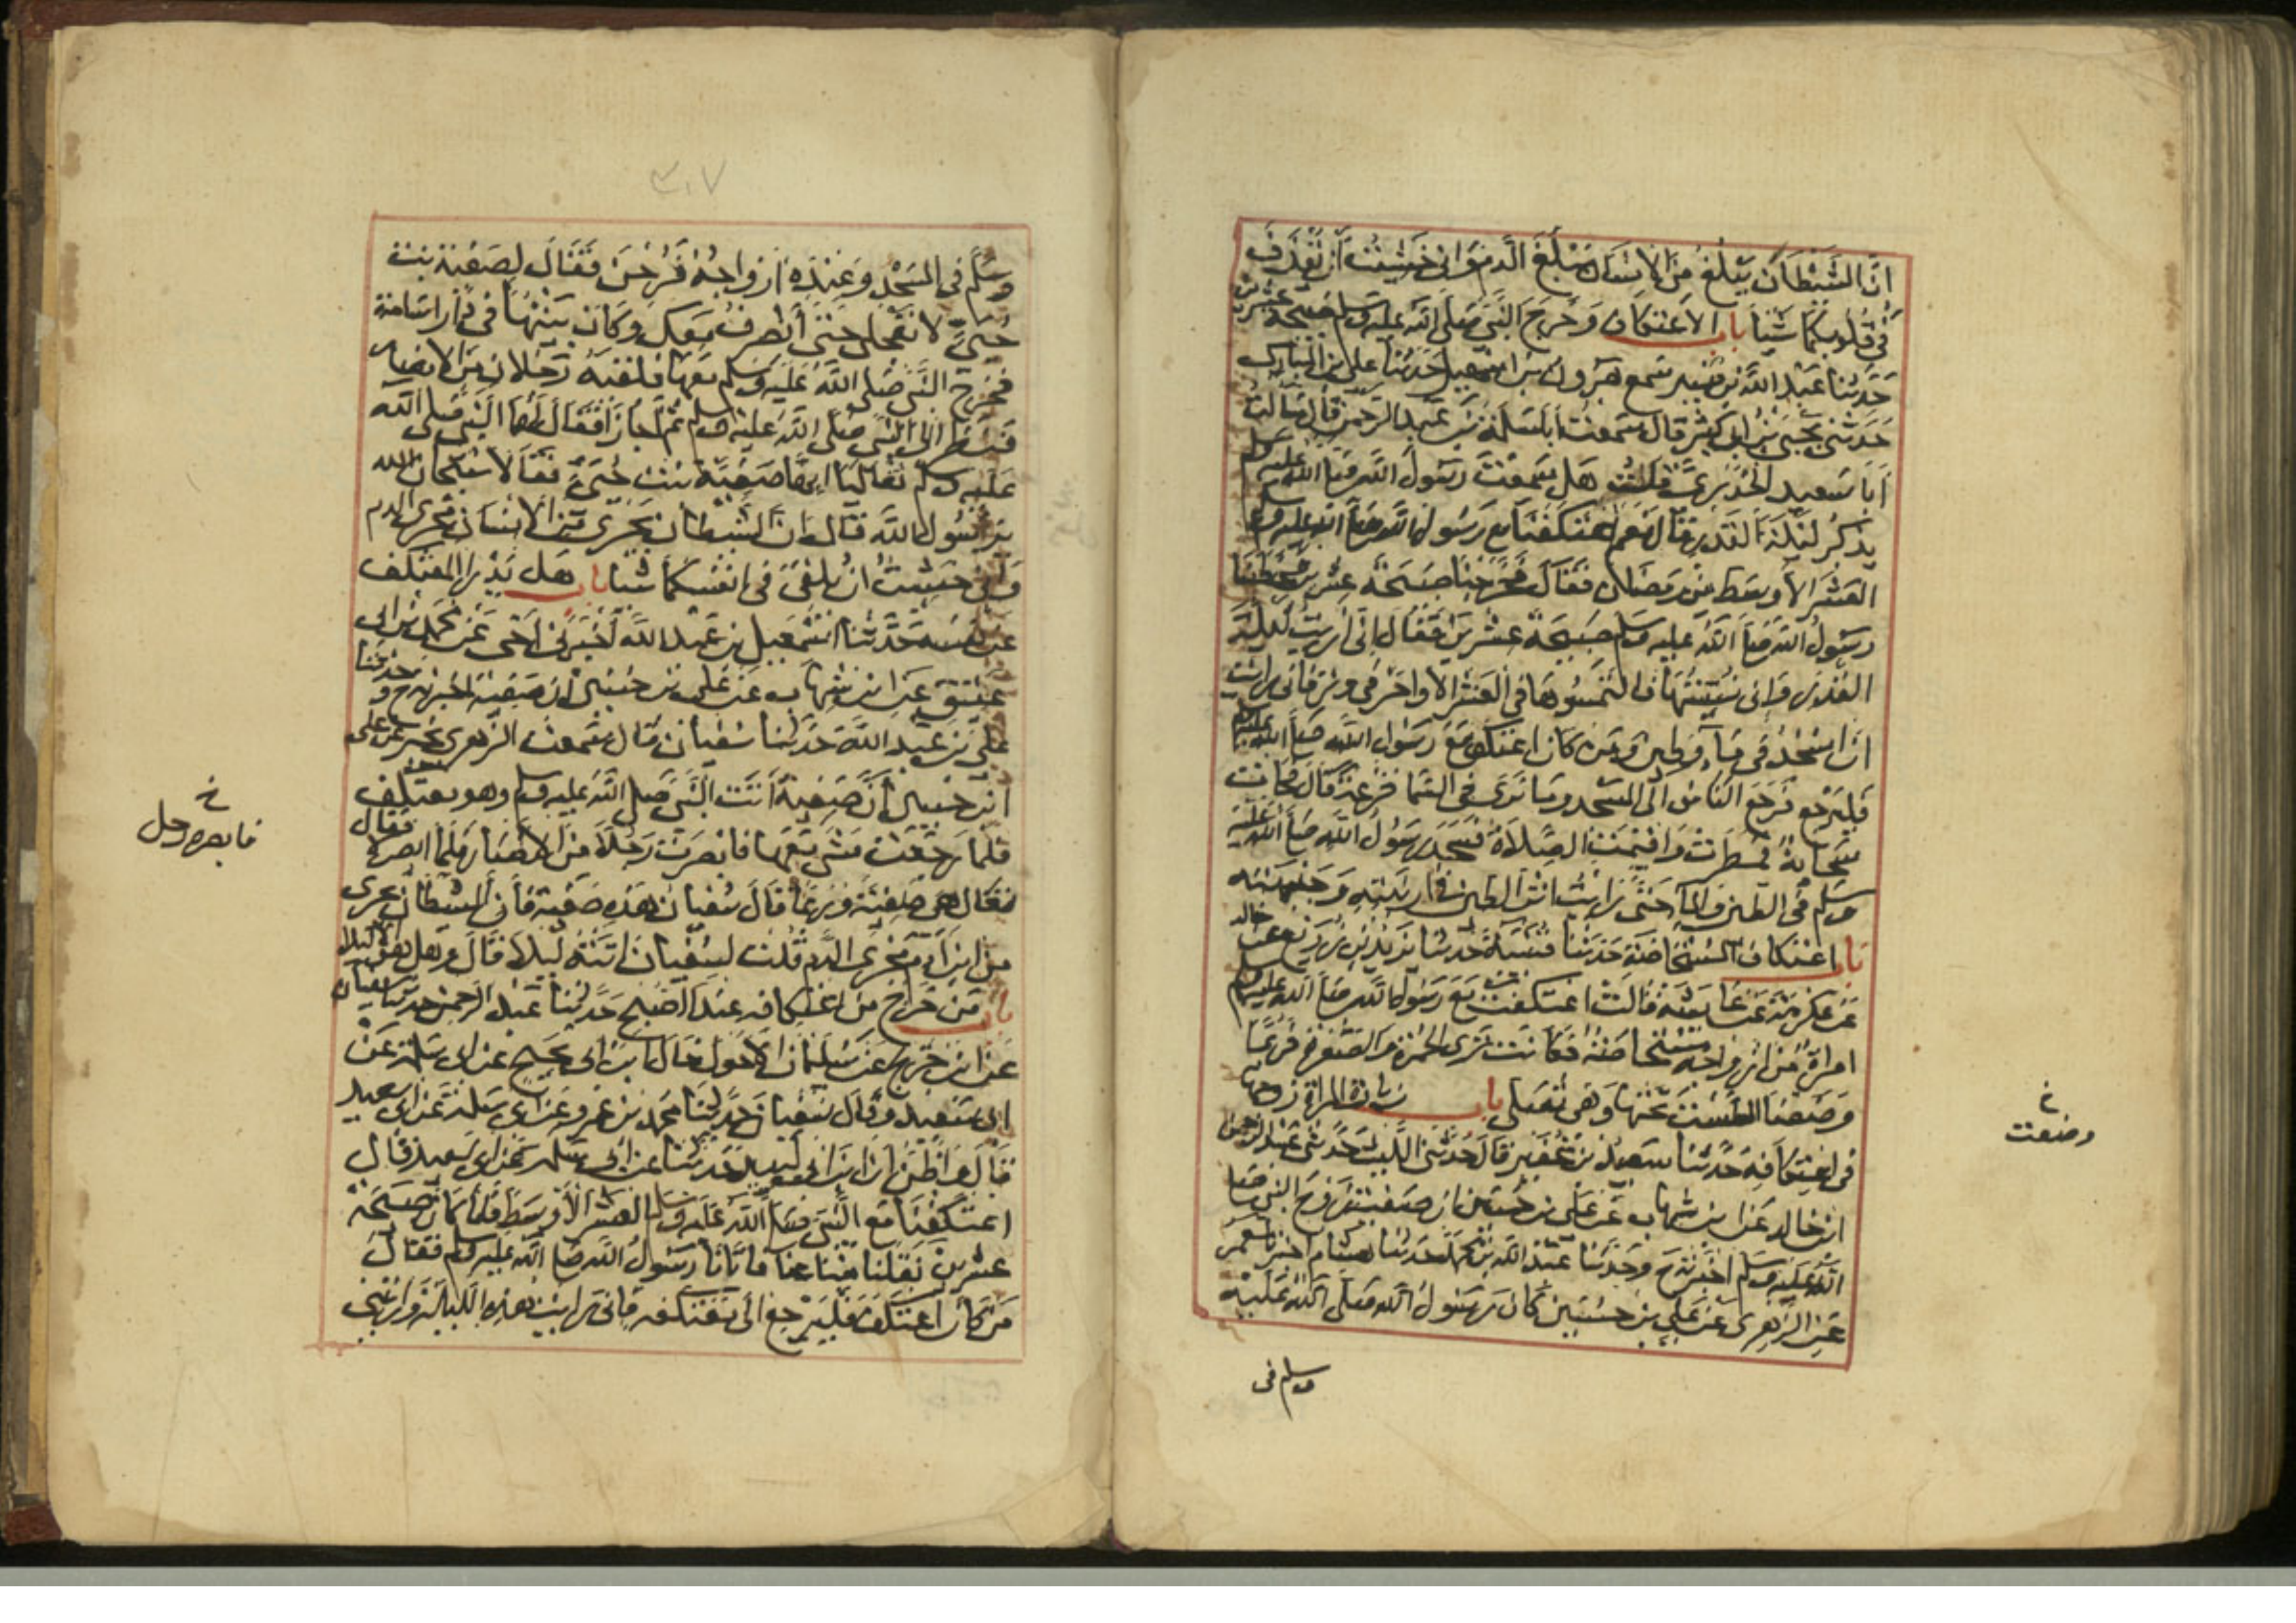 ان الشيطان يبلغ من الانسان مبلغ الدم واني خشيت ان يقذف
في قلوبكما شيا باب الاعتكاف وخرج النبي صلى الله عليه وسلم صبيحة عشرين
حدثنا عبد الله بن منير سمع هرون بن اسمعيل حدثنا علي بن المبارك
حدثني يحيى بن ابي كثير قال سمعت ابا سلمة بن عبد الرحمن قال سالت
ابا سعيد الخدري قلت هل سمعت رسول الله صلى الله عليه وسلم
يذكر ليلة القدر قال نعم اعتكفنا مع رسول الله صلى الله عليه وسلم
العشر الاوسط من رمضان فقال فخرجنا صبيحة عشرين فخطبنا
رسول الله صلى الله عليه وسلم صبيحة عشرين فقال اني اريت ليلة
القدر واني نسيتها فالتمسوها في العشر الاواخر في وتر فاني رايت
ان اسجد في ماء وطين ومن كان اعتكف مع رسول الله صلى الله عليه وسلم
فليرجع فرجع الناس الى المسجد وما نرى في السما قزعة قال فجات
سحابة فمطرت واقيمت الصلاة فسجد رسول الله صلى الله عليه
وسلم في الطين والما حتى رايت اثر الطين في ارنبته وجبهته
باب اعتكاف المستحاضة حدثنا قتيبة حدثنا يزيد بن زريع عن خالد
عن عكرمة عن عايشة قالت اعتكفت مع رسول الله صلى الله عليه وسلم
امراة من ازواجه مستحاضة فكانت ترى الحمرة والصفرة فربما
وضعنا الطست تحتها وهي تصلي باب زيارة المراة زوجها
في اعتكافه حدثنا سعيد بن عفير قال حدثني الليث حدثني عبد الرحمن
ابن خالد عن ابن شهاب عن علي بن حسين ان صفية زوج النبي صلى
الله عليه وسلم اخبرته ح وحدثنا عبد الله بن محمد حدثنا هشام اخبرنا معمر
عن الزهري عن علي بن حسين كان رسول الله صلى الله عليه
وسلم في
خ
وضعت
٣٠٧
وسلم في المسجد وعنده ازواجه فرحن فقال لصفية بنت
حيي لا تعجلي حتى انصرف معك وكان بيتها في دار اسامة
فخرج النبي صلى الله عليه وسلم معها فلقيه رجلان من الانصار
فنظرا الى النبي صلى الله عليه وسلم ثم اجازا فقال لهما النبي صلى الله
عليه وسلم تعاليا انها صفية بنت حيي فقالا سبحان الله
يا رسول الله قال ان الشيطان يجري من الانسان مجرى الدم
واني خشيت ان يلقي في انفسكما شيا باب هل يدرا المعتكف
عن نفسه حدثنا اسمعيل بن عبد الله اخبرني اخي عن محمد بن ابي
عتيق عن ابن شهاب عن علي بن حسين ان صفية اخبرته ح وحدثنا
علي بن عبد الله حدثنا سفيان قال سمعت الزهري يخبر عن علي
ابن حسين ان صفية اتت النبي صلى الله عليه وسلم وهو معتكف
فلما رجعت مشى معها فابصرت رجلا من الانصار فلما ابصره
فقال تعال هي صفية وربما قال سفيان هذه صفية فان الشيطان يجري
من ابن ادم مجرى الدم قلت لسفيان اتته ليلا قال وهل هو الا ليلا
باب من خرج من اعتكافه عند الصبح حدثنا عبد الرحمن حدثنا سفيان
عن ابن جريج عن سليمان الاحول خال ابن ابي نجيح عن ابي سلمة عن
ابي سعيد وقال سفيان حدثنا محمد بن عمرو عن ابي سلمة عن ابي سعيد
قال واظن ان ابن ابي لبيد حدثنا عن ابي سلمة عن ابي سعيد قال
اعتكفنا مع النبي صلى الله عليه وسلم العشر الاوسط فلما كان صبيحة
عشرين نقلنا متاعنا فاتانا رسول الله صلى الله عليه وسلم فقال
من كان اعتكف فليرجع الى معتكفه فاني رايت هذه الليلة ورايتني
خ
فابصره رجل